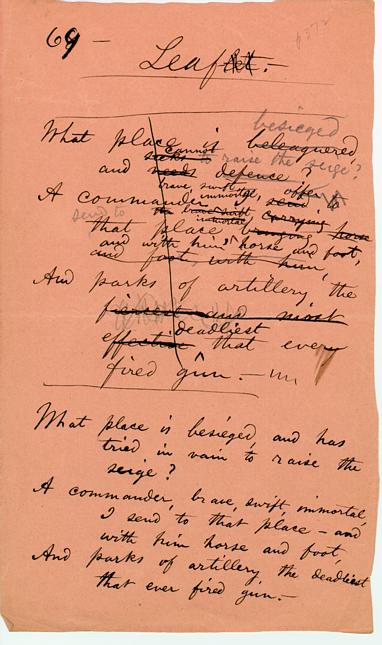 69 –
Leaflet.–
besieged
What place is beleaguered,
cannot raise the seige?
and needs defence?
brave, swift, immortal, offer
A commander, send
send to the brave swift immortal carrying horse
that place bringing horse
and with him horse and foot,
and foot, with him,
And parks of artillery, the
fiercest and most
deadliest
effective that ever
fired gun.–
What place is besieged, and has
tried in vain to raise the
seige?
A commander, brave, swift, immortal,
I send to that place – and
with him horse and foot,
And parks of artillery, the deadliest
that ever fired gun.–